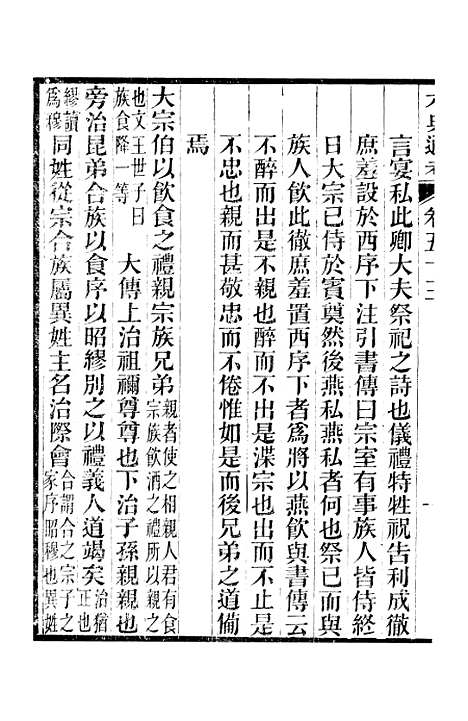 言宴私此卿大夫祭祀之詩也儀禮特牲祝告利成徹
庶羞設於西序下注引書傳曰宗室有事族人皆侍終
日大宗已侍於賓奠然後燕私燕私者何也祭已而與
族人飲此徹庶羞置西序下者爲將以燕飲與書傳云
不醉而出是不親也醉而不出是渫宗也出而不止是
不忠也親而甚敬忠而不倦惟如是而後兄弟之道備
焉
大宗伯以飲食之禮親宗族兄弟親者使之相親人君有食宗族飲酒之禮所以親之
也文王世子曰族食降一等大傳上治祖禰尊尊也下治子孫親親也
旁治昆弟合族以食序以昭繆別之以禮義人道竭矣治猶正也
繆讀爲穆同姓從宗合族屬異姓主名治際會合謂合之宗子之家序昭穆也異姓